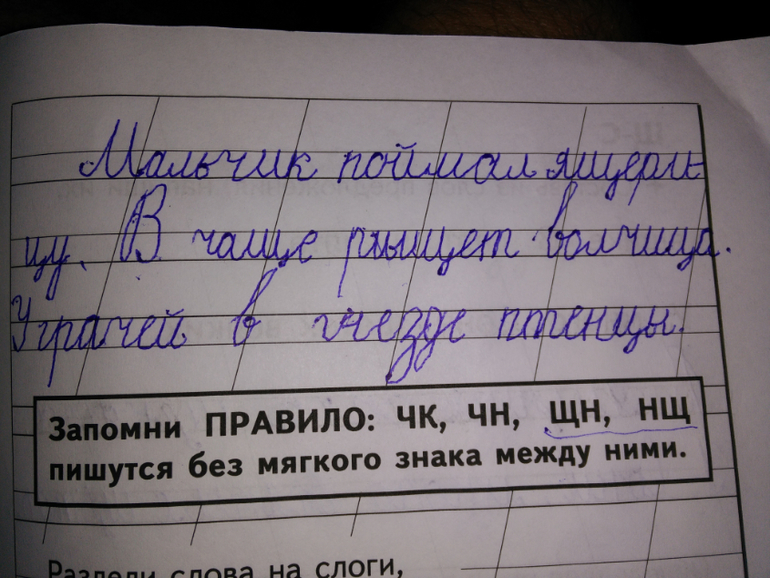 Мальчик поймал ящери-
цу. В чаще рыщет волчица.
У грачей в гнезде птенцы.
Запомни ПРАВИЛО: ЧК, ЧН, ЩН, НЩ
пишутся без мягкого знака между ними.
Раздели слова на слоги,